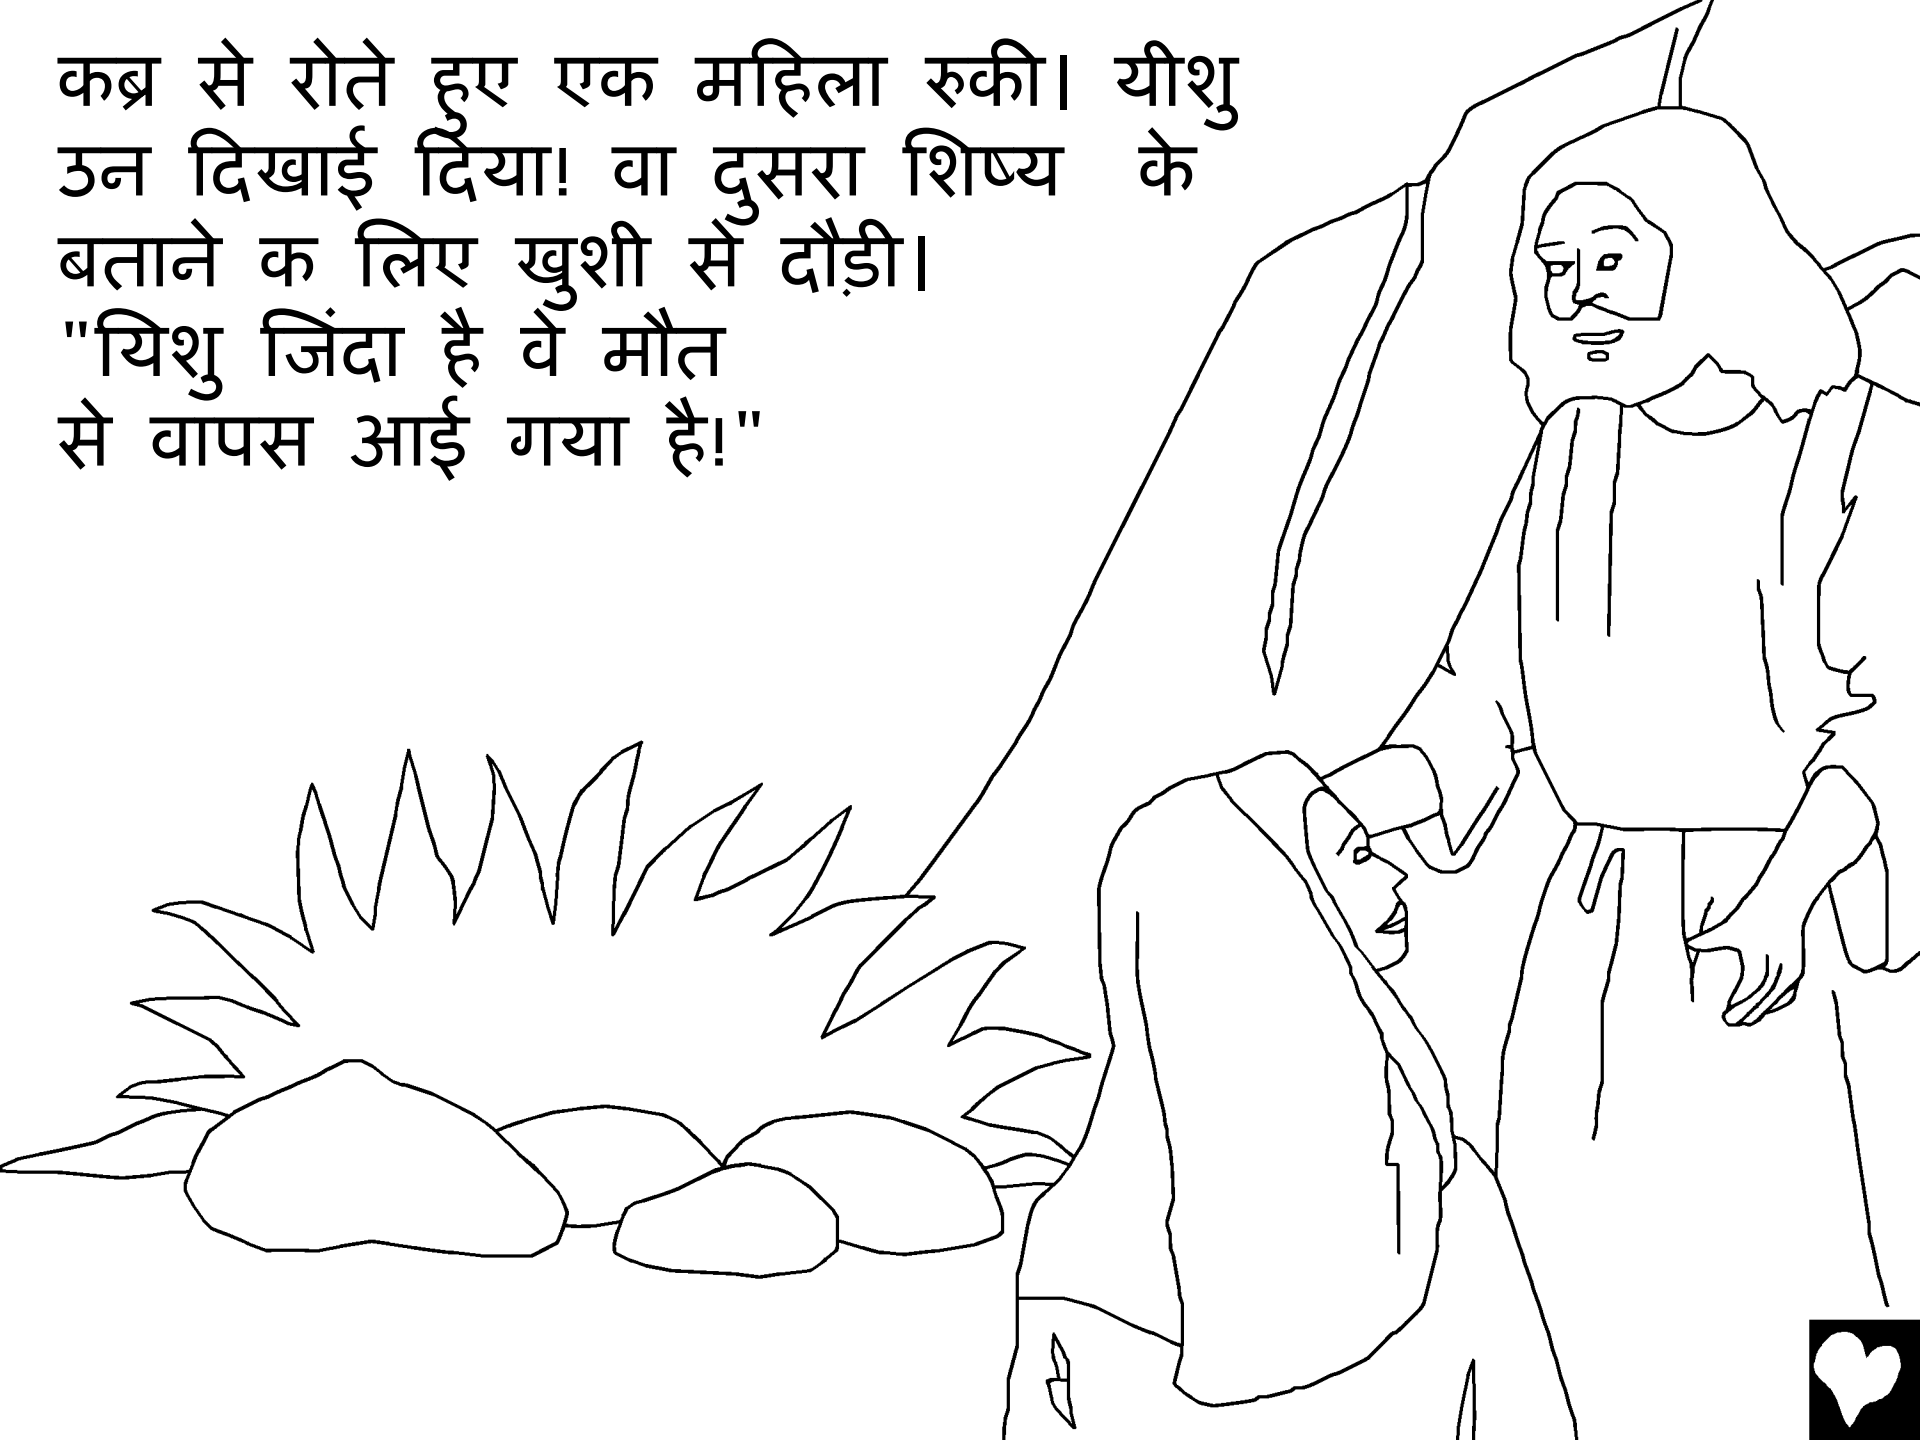 कब्र से रोते हुए एक महिला रुकी। यीशु
उन दिखाई दिया! वा दुसरा शिष्य के
बताने क लिए खुशी से दौड़ी।
"यिशु जिंदा है वे मौत
से वापस आई गया है!"